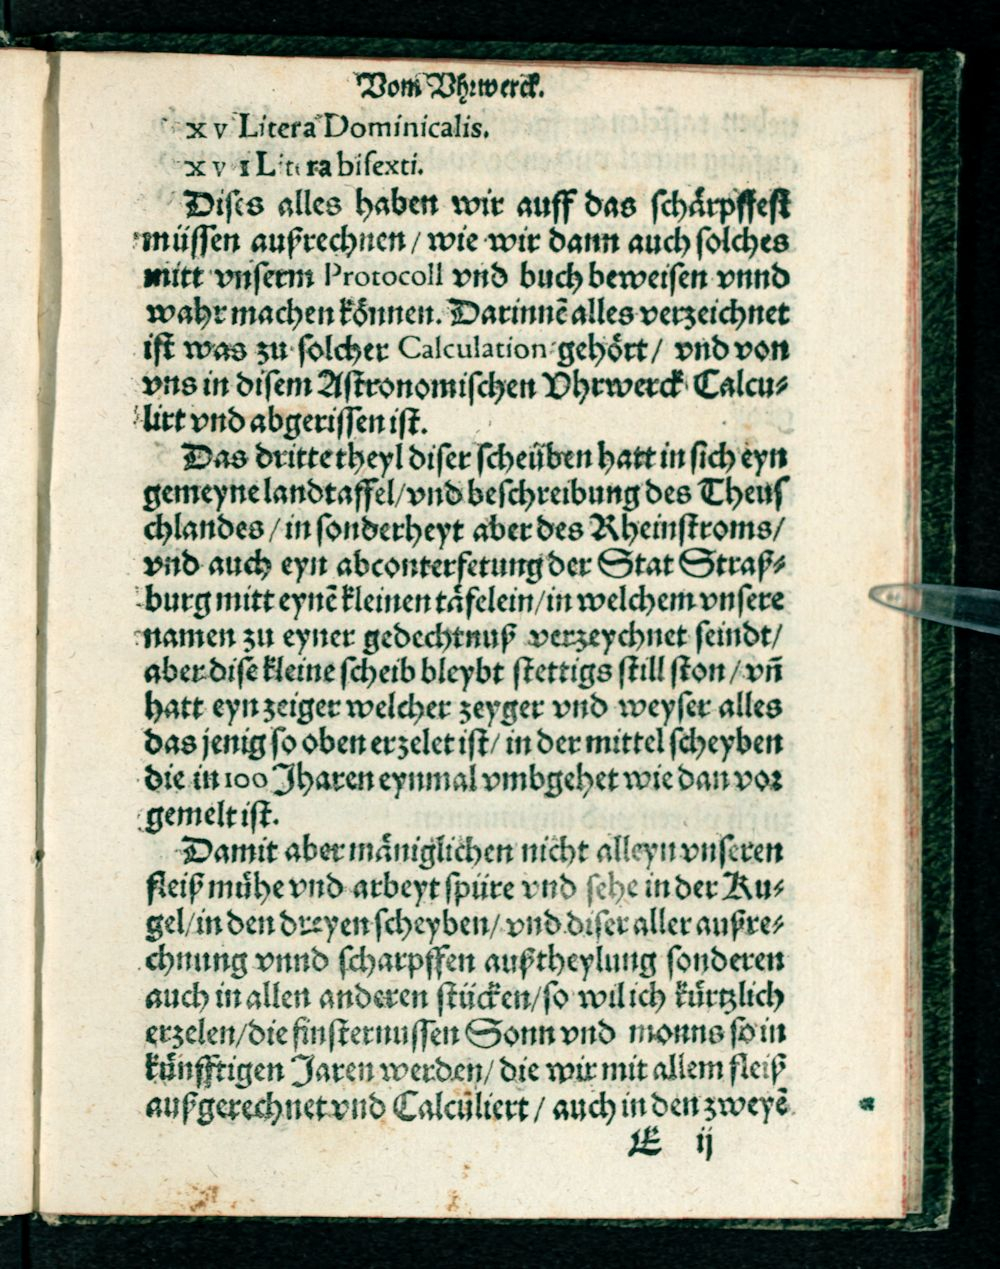 Vom Vhrwerck.
x v Litera Dominicalis.
x v i Litera bisexti.
Dises alles haben wir auff das schärpffest
müssen außrechnen / wie wir dann auch solches
mitt vnserm Protocoll vnd buch beweisen vnnd
wahr machen können. Darinnẽ alles verzeichnet
ist was zu solcher Calculation gehört / vnd von
vns in disem Astronomischen Vhrwerck Calcu⸗
lirt vnd abgerissen ist.
Das dritte theyl diser scheüben hatt in sich eyn
gemeyne landtaffel / vnd beschreibung des Theus
chlandes / in sonderheyt aber des Rheinstroms /
vnd auch eyn abconterfetung der Stat Straß⸗
burg mitt eynẽ kleinen täfelein / in welchem vnsere
namen zu eyner gedechtnuß verzeychnet seindt /
aber dise kleine scheib bleybt stettigs still ston / vñ
hatt eyn zeiger welcher zeyger vnd weyser alles
das jenig so oben erzelet ist / in der mittel scheyben
die in 100 Jharen eynmal vmbgehet wie dan vor
gemelt ist.
Damit aber mäniglichen nicht alleyn vnseren
fleiß mühe vnd arbeyt spüre vnd sehe in der Ku⸗
gel / in den dreyen scheyben / vnd diser aller außre⸗
chnung vnnd scharpffen außtheylung sonderen
auch in allen anderen stücken / so wil ich kürtzlich
erzelen / die finsternussen Sonn vnd monns so in
künfftigen Jaren werden / die wir mit allem fleiß
außgerechnet vnd Calculiert / auch in den zweyẽ
E ij